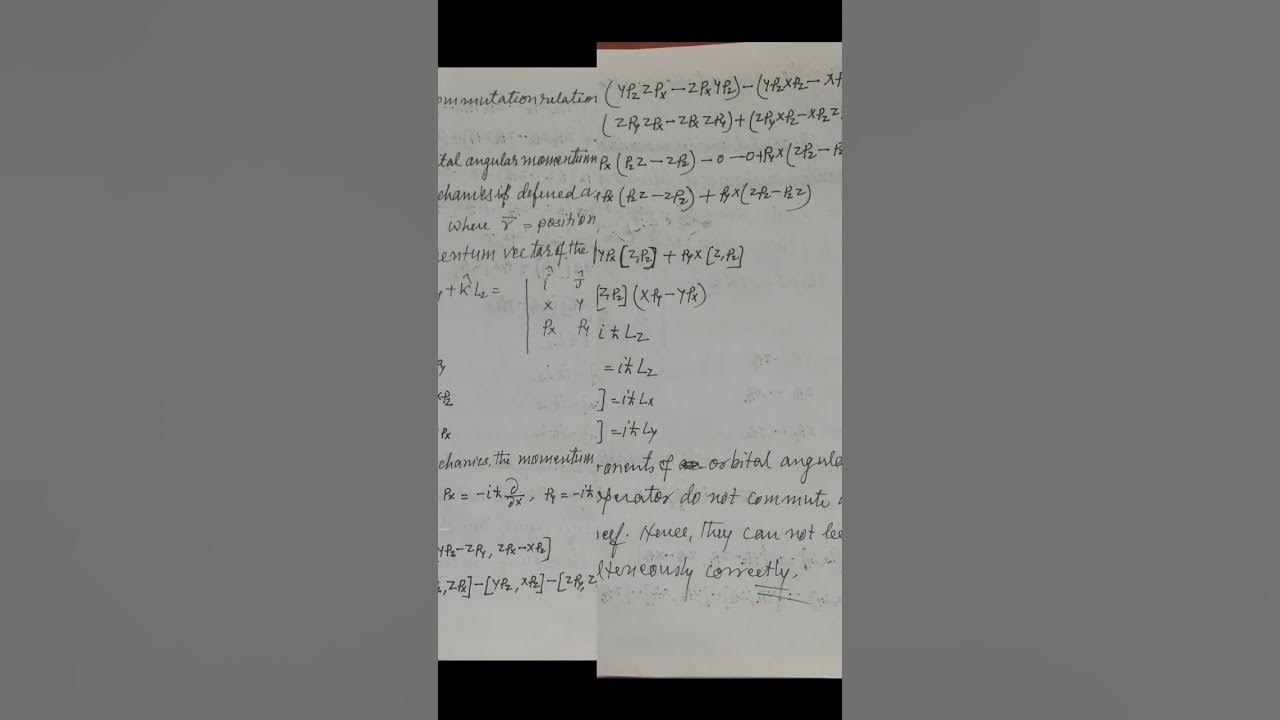 ommutation relation
ital angular momentum
chanics is defined as
where r⃗ = position
entum vector of the
+ k̂ L_z = | î ĵ
x y
P_x P_y
P_y
xP_z
P_x
chanics, the momentum
P_x = -iħ ∂/∂x, P_y = -iħ
yP_z - zP_y, zP_x - xP_z]
, zP_x] - [yP_z, xP_z] - [zP_y, z
(yP_z zP_x - zP_x yP_z) - (yP_z xP_z - xP
(zP_y zP_x - zP_x zP_y) + (zP_y xP_z - xP_z z
P_x (P_z z - zP_z) - 0 - 0 + P_y x (zP_z - P_z
P_x (P_z z - zP_z) + P_y x (zP_z - P_z z)
yP_x [z, P_z] + P_y x [z, P_z]
[z, P_z] (xP_y - yP_x)
iħ L_z
= iħ L_z
] = iħ L_x
] = iħ L_y
onents of orbital angula
operator do not commute
. Hence, they can not be
lteneously correctly.